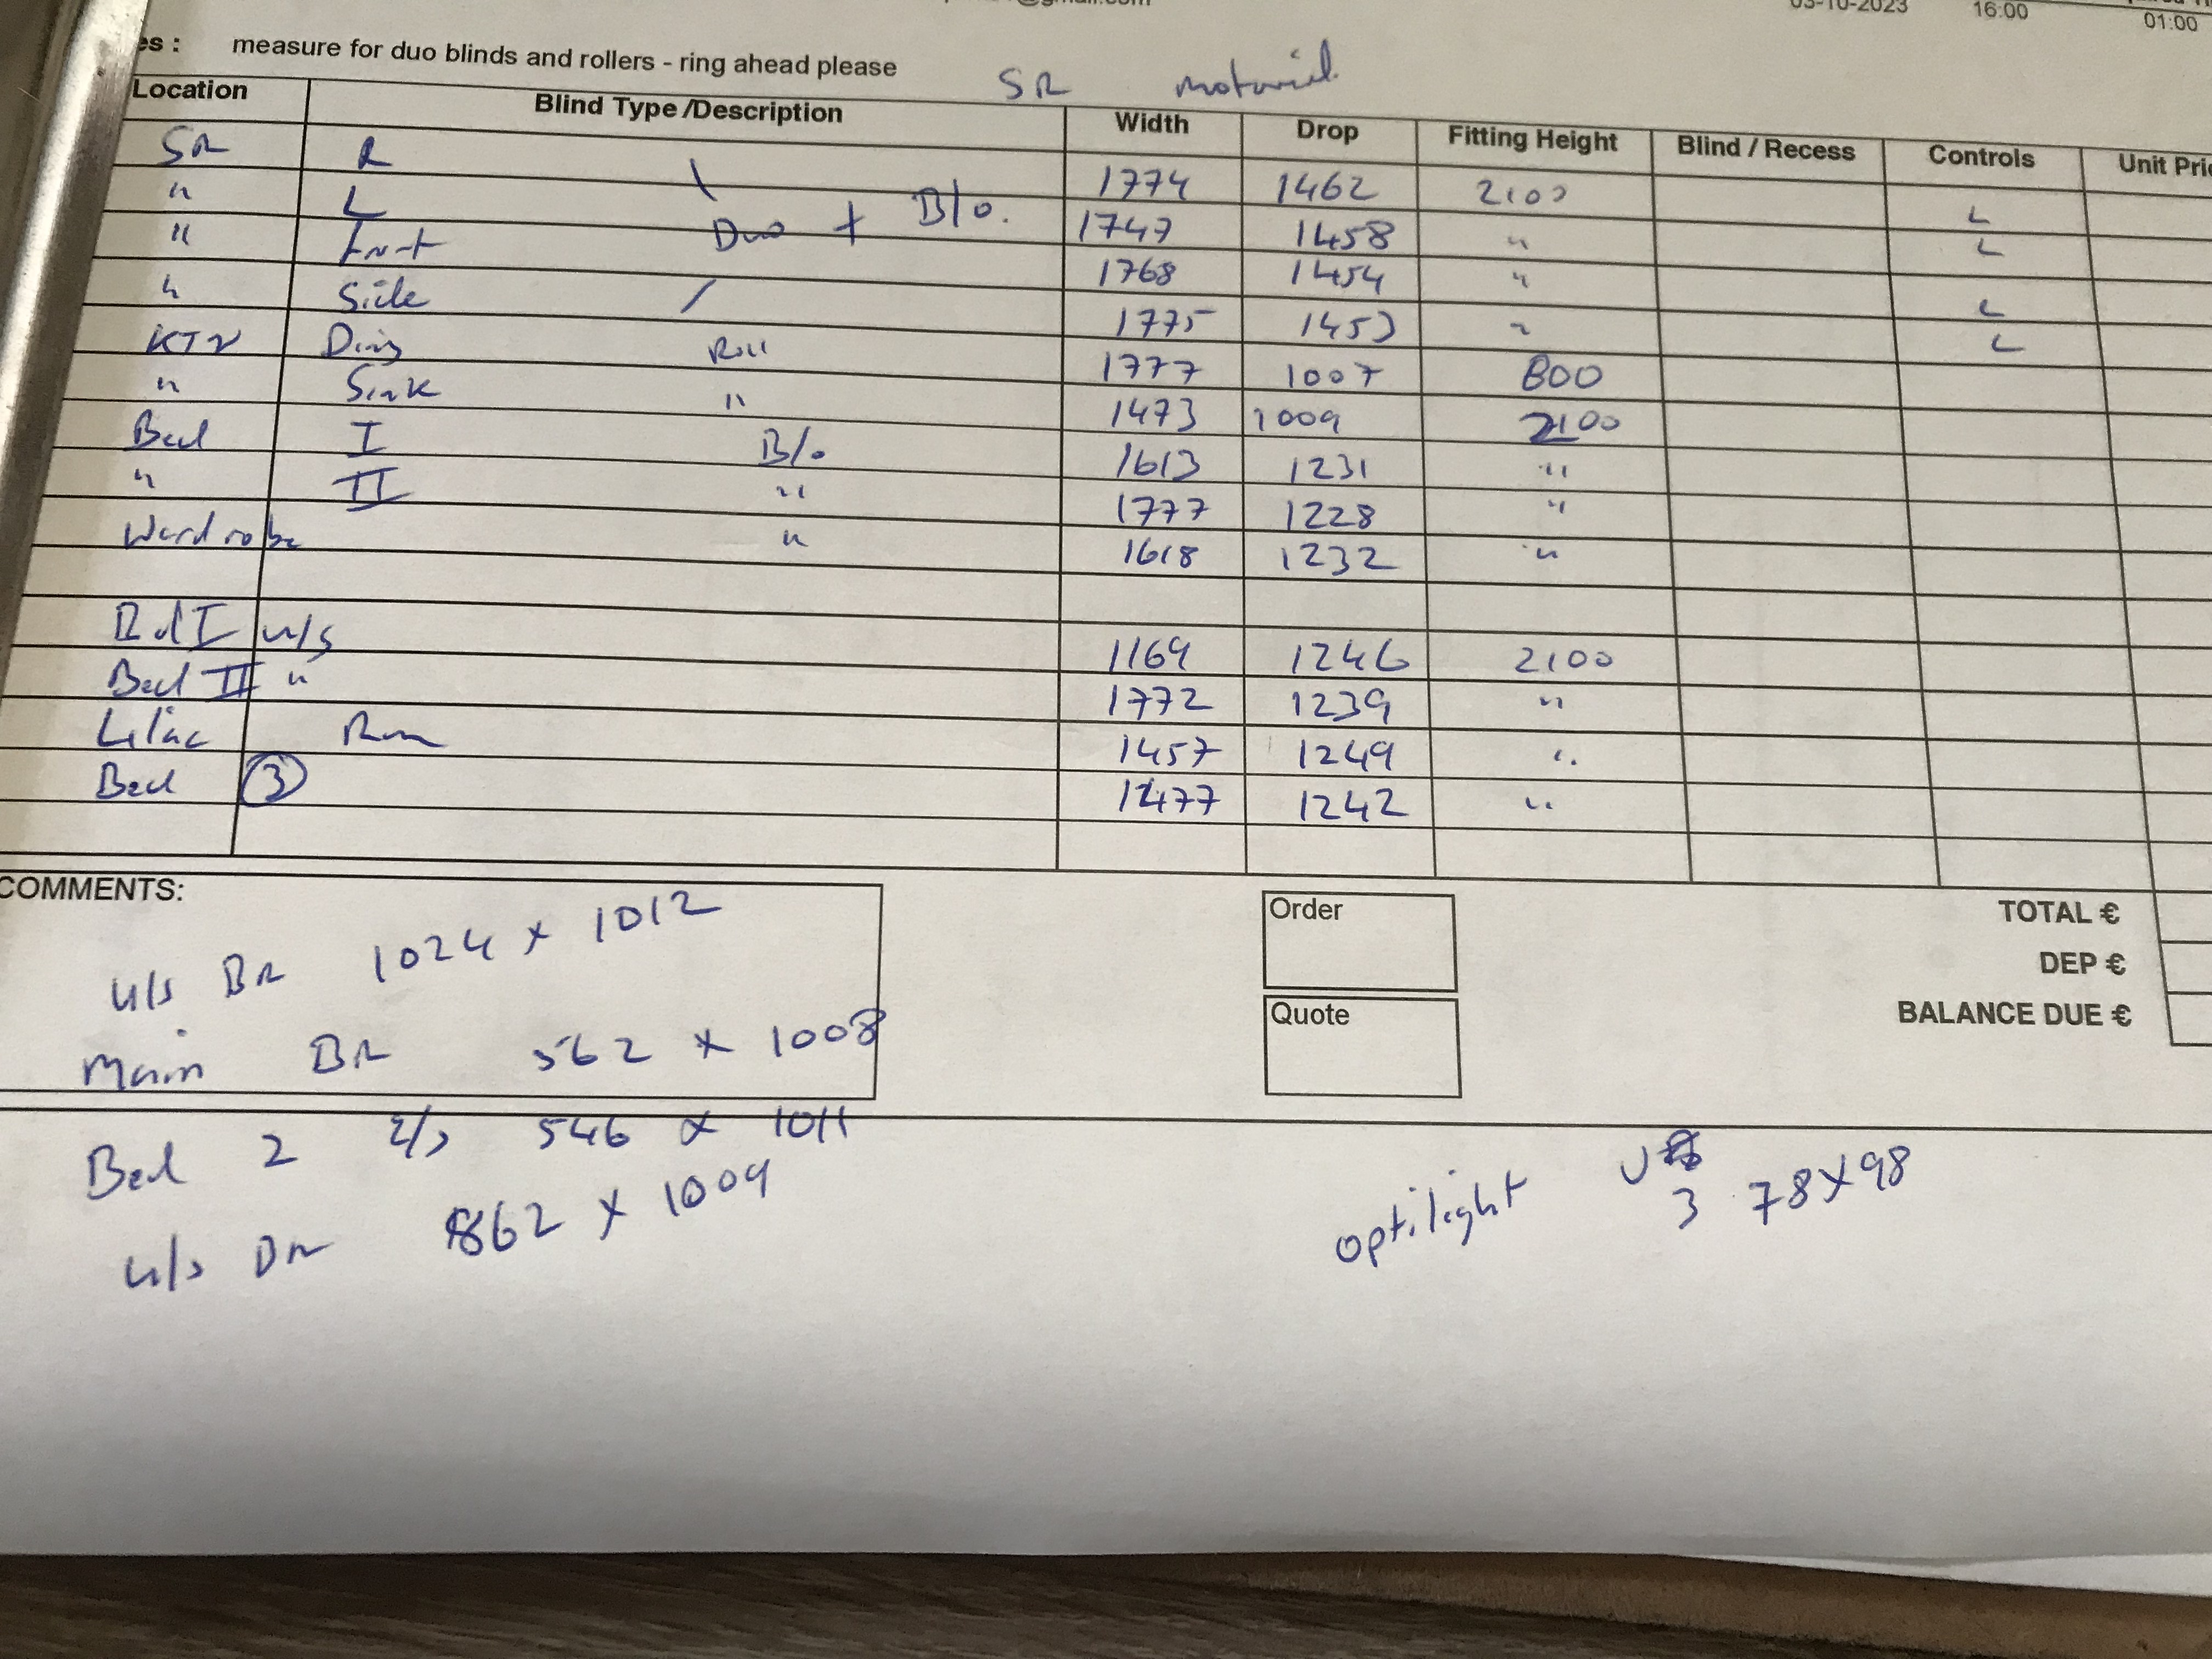 @gmail.com
03-10-2023 16:00 01:00
es : measure for duo blinds and rollers - ring ahead please
SR
Location Blind Type /Description Width Drop Fitting Height Blind / Recess Controls Unit Pri
SR R 1774 1462 2100 L
" L Duo + B/o. 1747 1458 " L
" Front 1768 1454 " L
" Side 1775 1453 " L
KTN Roll 1777 1007 800
" Sink " 1473 1009 2100
Bed I B/o 1613 1231 "
" II " 1777 1228 "
Wardrobe " 1618 1232 "
Bed I u/s 1169 1246 2100
Bed II " 1772 1239 "
Lilac Rm 1457 1249 "
Bed 3 1477 1242 "
COMMENTS:
u/s BR 1024 x 1012
Main BR 562 x 1008
Bed 2 546 x 1011
u/s BR 862 x 1009
Order
Quote
TOTAL €
DEP €
BALANCE DUE €
Optilight
3 78x98